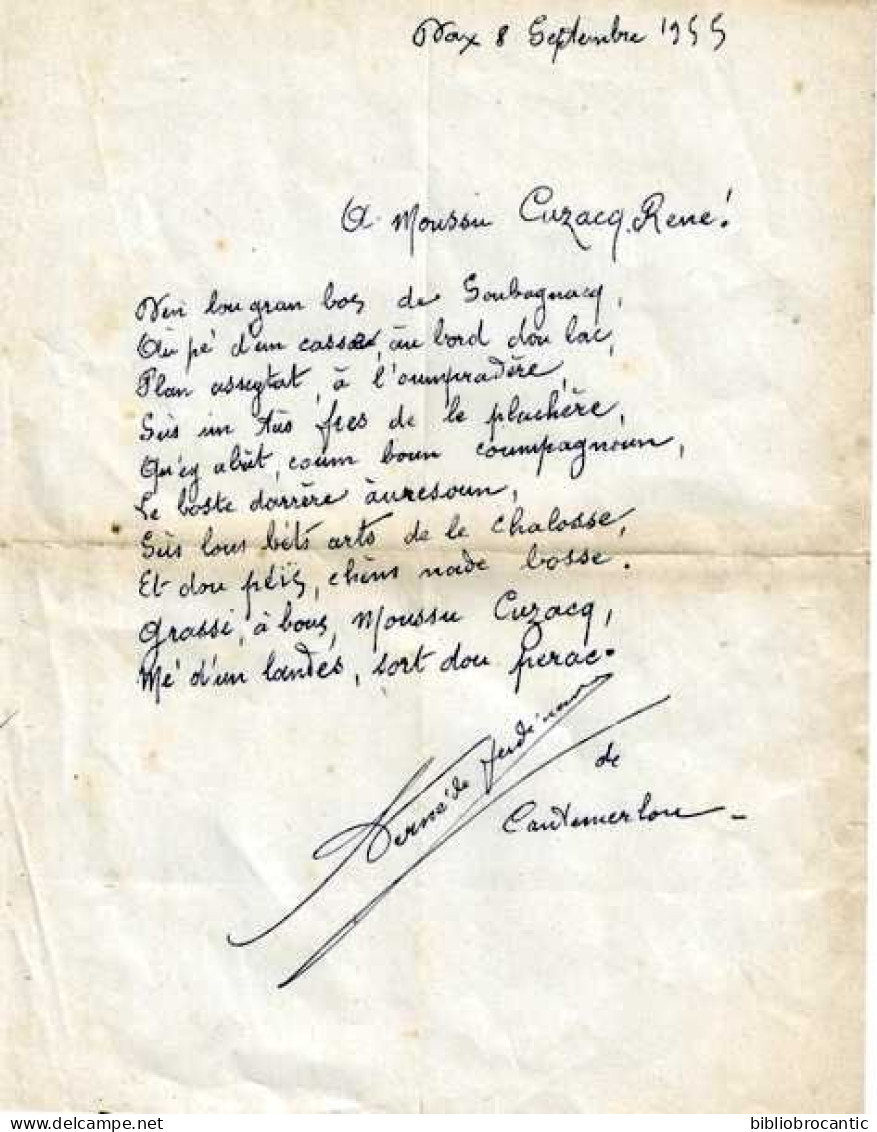 Dax 8 Septembre 1955
A Moussu Cuzacq René!
Den lou gran bos de Soubagnacq,
Aù pè d'un casso, àu bord dou lac,
Plan assegtat, à l'oumpradère,
Sùs un tùs fres de le plachère,
Qu'ey abùt, coum boun coumpagnoun,
Le boste darrère àuresoun,
Sùs lous bèts arts de le Chalosse,
Et dou péïs, chèns nade bosse.
Grassi, à bous, Moussu Cuzacq,
Mé d'un landés, sort dou perac.
Ferdinand
de
Cantemerlou
bibliobrocantic